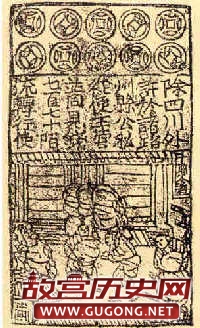 除四川外
許於諸路
州縣公私
從便主管
並同見錢
七百七十陌
流轉行使
故宫历史网
www.GUGONG.net